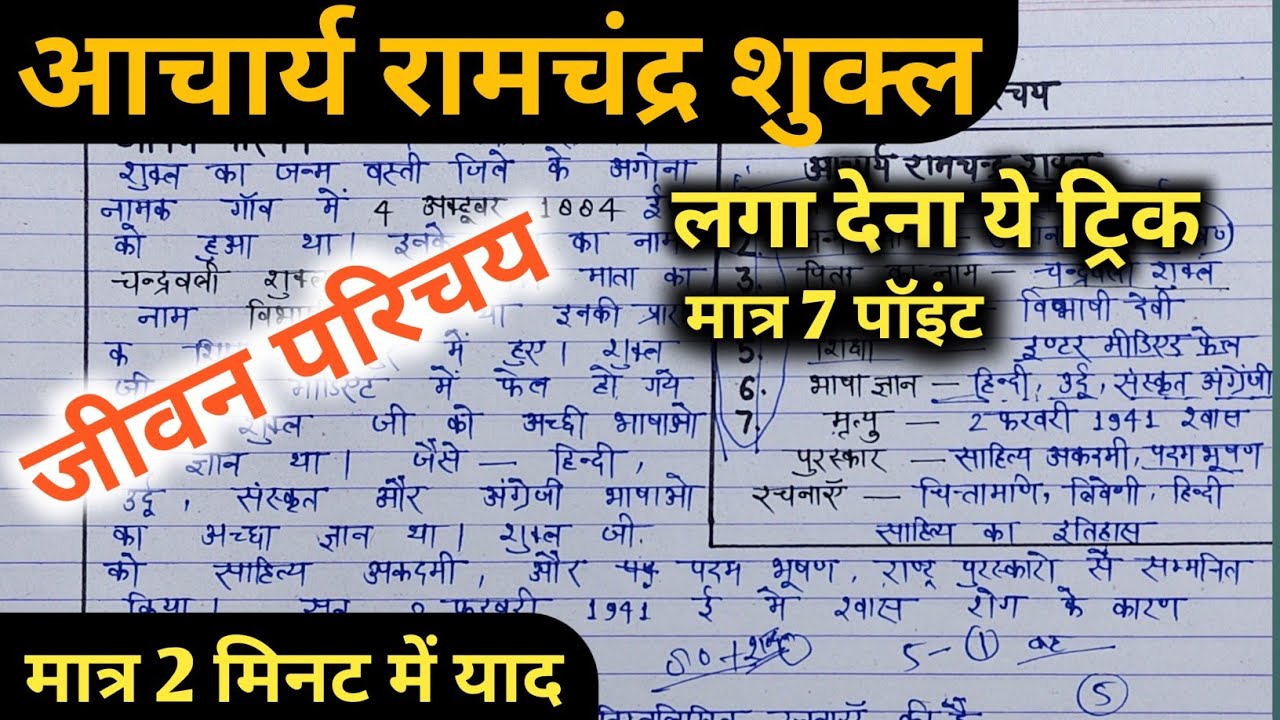 आचार्य रामचंद्र शुक्ल
लगा देना ये ट्रिक
मात्र 7 पॉइंट
जीवन परिचय
मात्र 2 मिनट में याद
शुक्ल का जन्म वस्ती जिले के अगोना
नामक गाँव में 4 अक्टूवर 1884 ई
को हुआ था। इनके का नाम
चन्द्रवली शुक्ल माता का
नाम इनकी
में हुए। शुक्ल
जी में फेल हो गये
शुक्ल जी को अच्छी भाषाओ
ज्ञान था। जैसे — हिन्दी,
उर्दू, संस्कृत और अंग्रेजी भाषाओ
का अच्छा ज्ञान था। शुक्ल जी.
को साहित्य अकदमी, और पदम भूषण, राष्ट्र पुरस्कारो से सम्मनित
किया। सन फरवरी 1941 ई में श्वास रोग के कारण
आचार्य रामचन्द्र शुक्ल
2.
3. पिता का नाम — चन्द्रवली शुक्ल
विभाषी देवी
5. शिक्षा — इण्टर मीडिएड फेल
6. भाषा ज्ञान — हिन्दी, उर्दू, संस्कृत अंग्रेजी
7. मृत्यु — 2 फरवरी 1941 श्वास
पुरस्कार — साहित्य अकदमी, पदम भूषण
रचनाएँ — चिन्तामणि, त्रिवेणी, हिन्दी
साहित्य का इतिहास
5 – 1
5